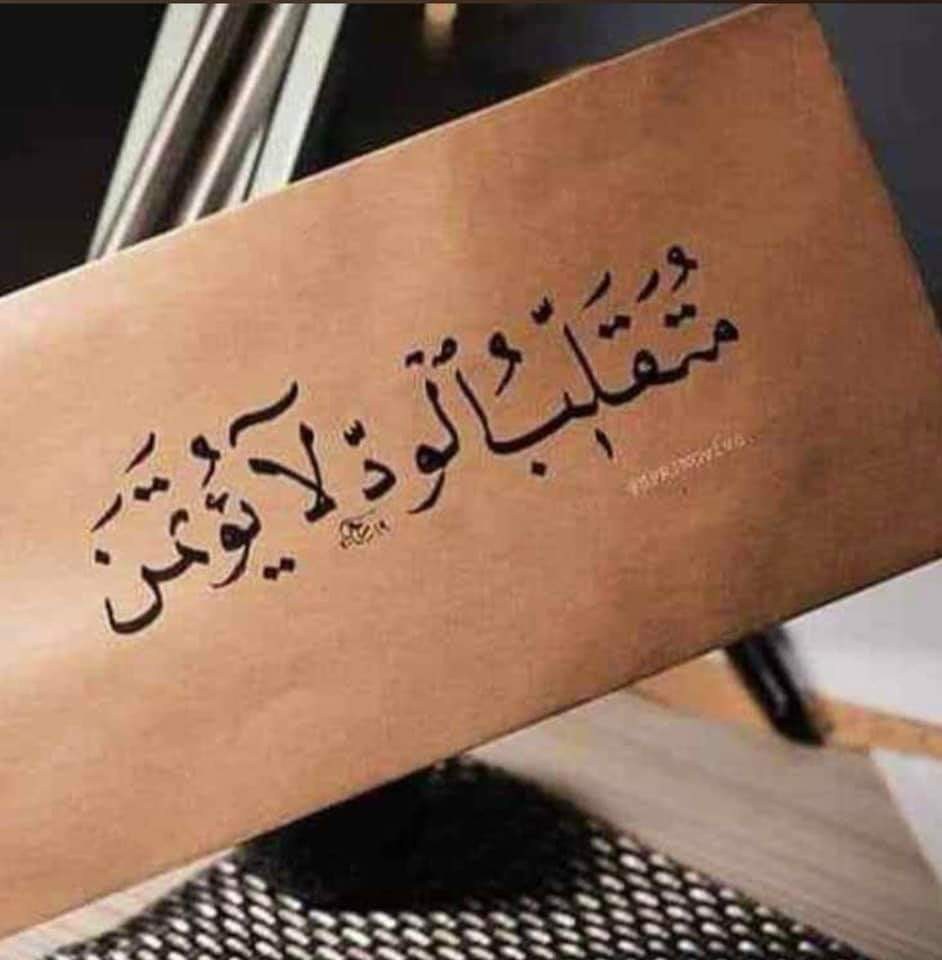 مُتَقَلِّبُ ٱلوُدّ لَا يُؤْتَمَن